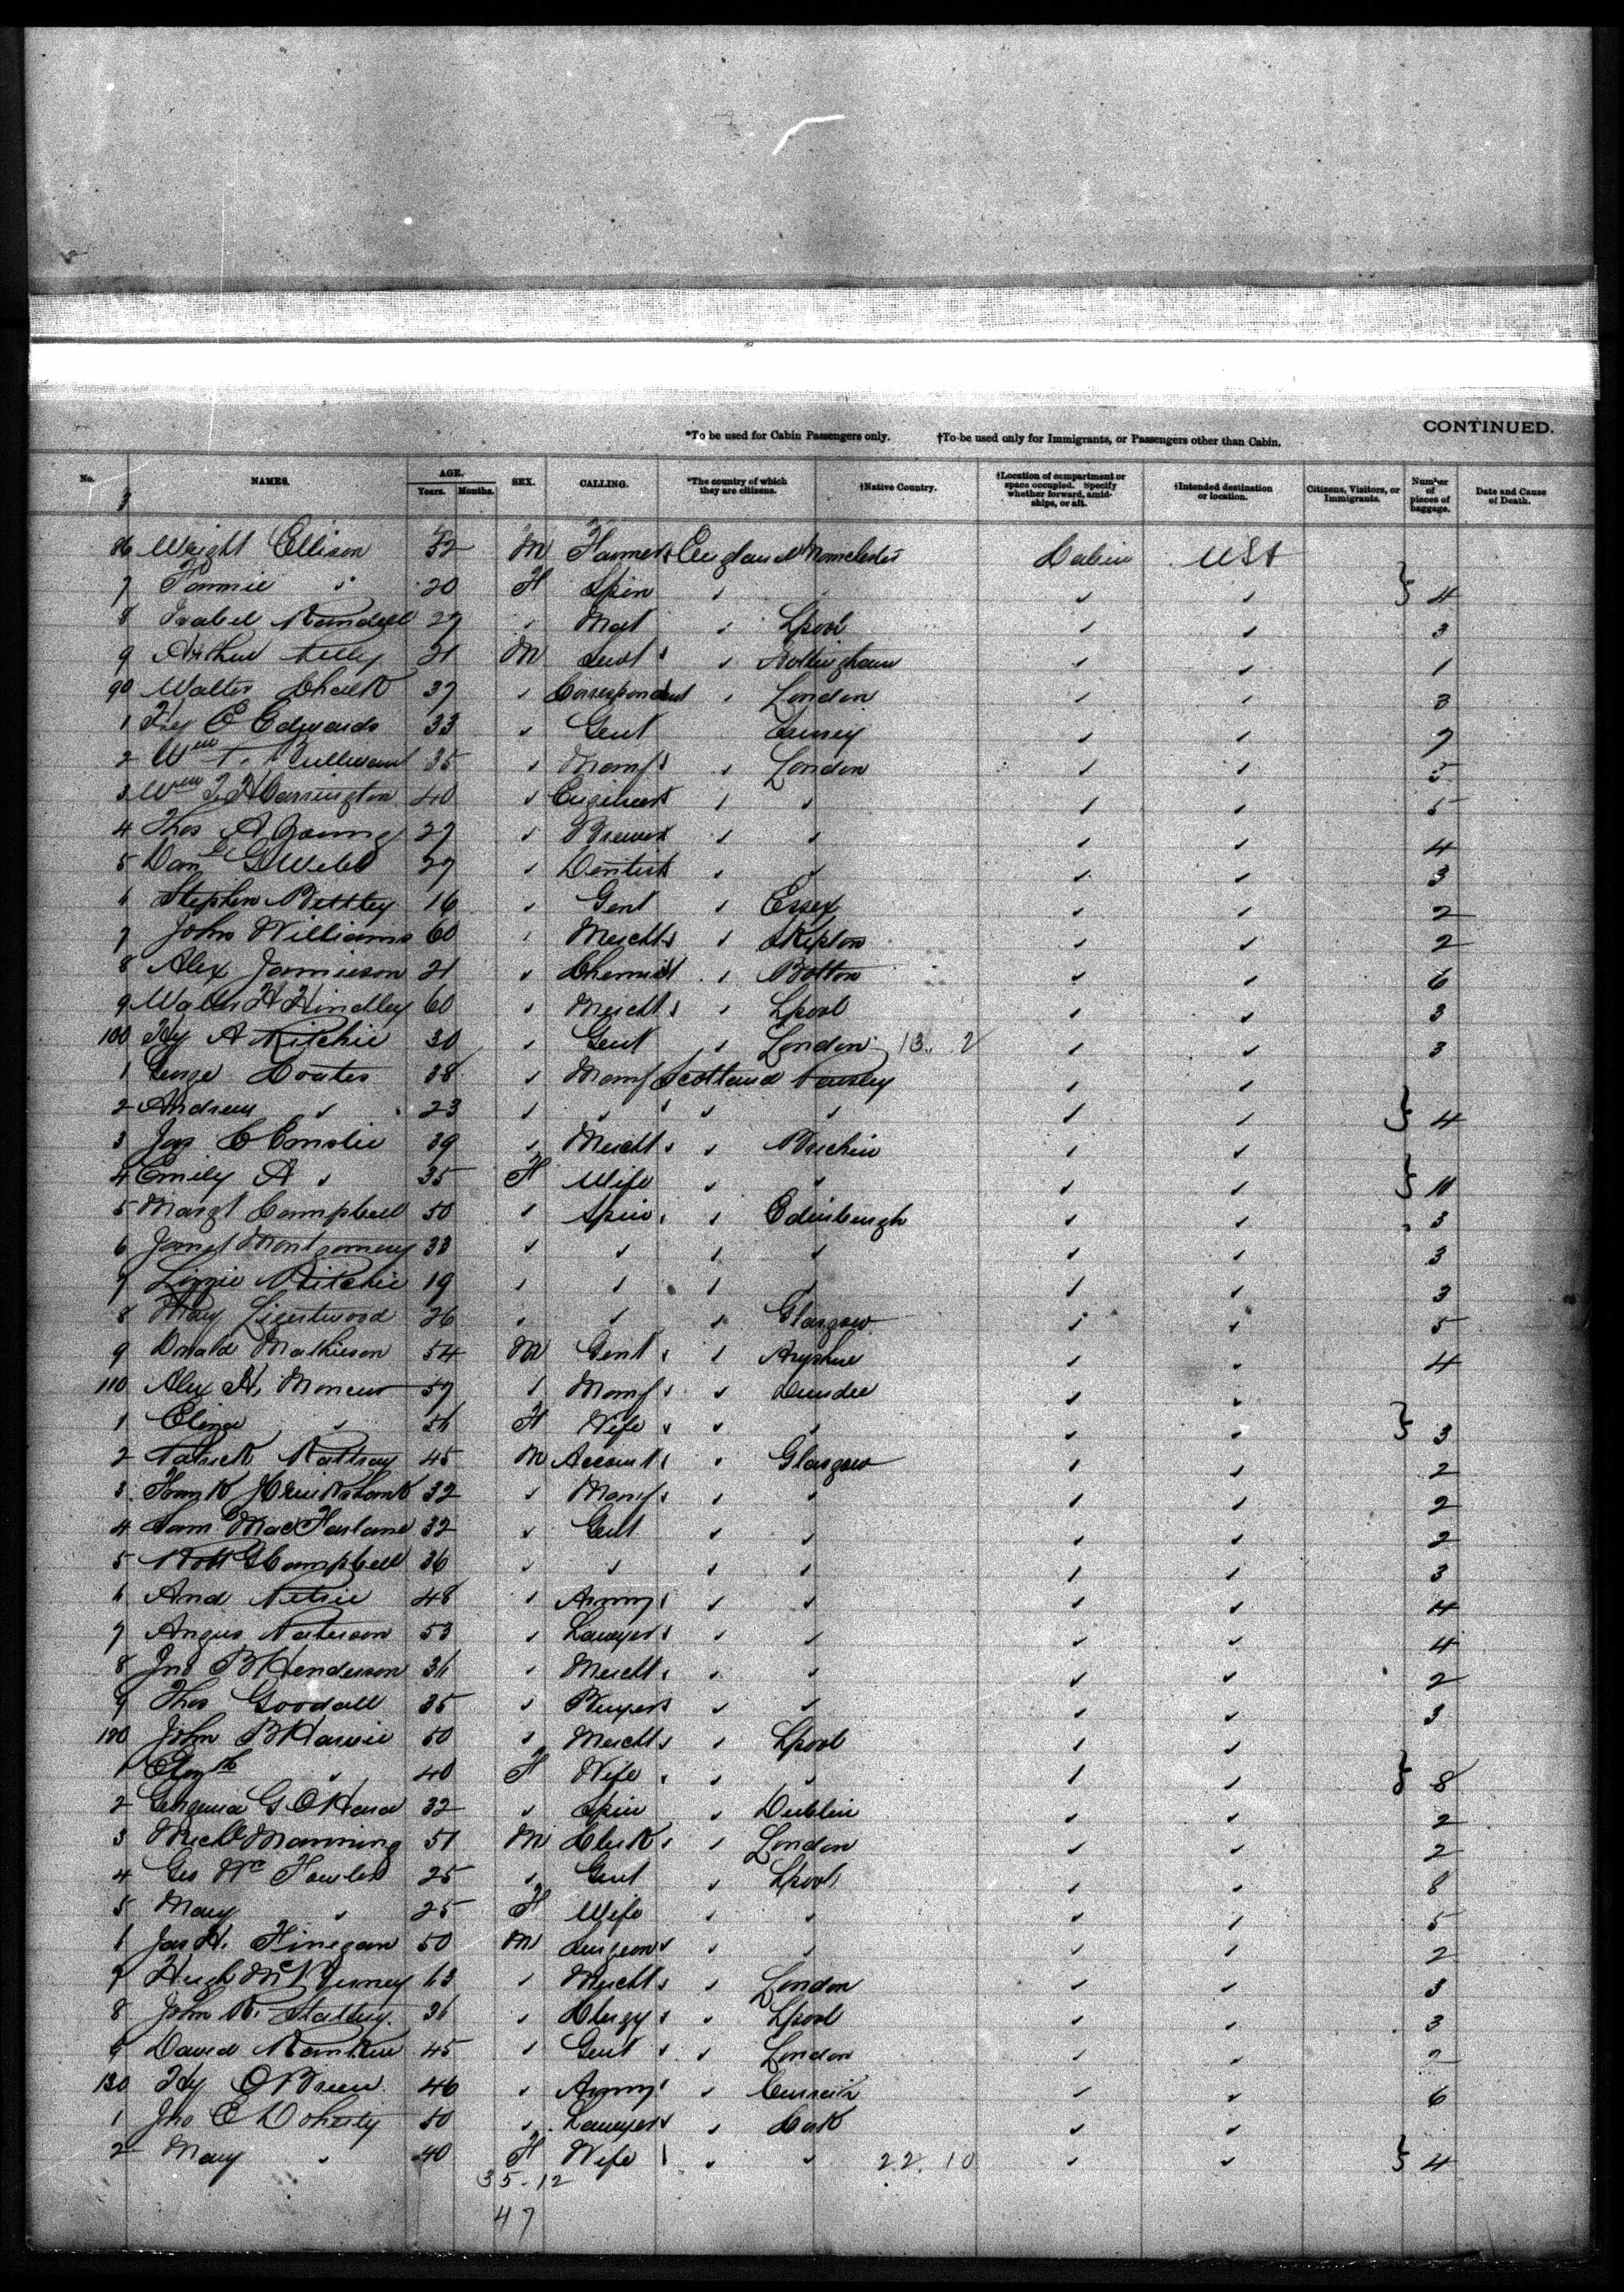 CONTINUED.
*To be used for Cabin Passengers only. †To be used only for Immigrants, or Passengers other than Cabin.
No. NAMES. AGE. Years. Months. SEX. CALLING. *The country of which they are citizens. †Native Country. †Location of compartment or space occupied. Specify whether forward, amidships, or aft. †Intended destination or location. Citizens, Visitors, or Immigrants. Number of pieces of baggage. Date and Cause of Death.
3
86 Wright Ellison 52 M Farmer England Manchester Cabin USA
7 Fannie " 20 F Spin " " " " } 4
8 Isabel Randell 27 " Mat " Lpool " " 3
9 Arthur Kelly 21 M " Nottingham " " 1
90 Walter Chalk 37 " Correspondent " London " " 3
1 Hy E Edwards 33 " Gent Surrey " " 7
2 Wm T. 35 " Manf " London " " 5
3 Wm T. Harrington 40 " Engineer " " " " 5
4 Thos A Young 27 " Brewer " " " " 4
5 Danl G Webb 27 " Dentist " " " " 3
6 Stephen Bettley 16 " Gent " Essex " " 2
7 John Williams 60 " Mercht " Skipton " " 2
8 Alex Jamieson 21 " Chemist " Bolton " " 6
9 Walter H Hindley 60 " Mercht " Lpool " " 3
100 Hy A Ritchie 30 " Gent " London 13. 2 " " 3
1 George Coates 38 " Manf Scotland Paisley " "
2 Andrew " 23 " " " " " " } 4
3 Jas C Emslie 39 " Mercht " Brechin " "
4 Emily A " 35 F Wife " " " " } 11
5 Margt Campbell 50 " Spin " Edinburgh " " 3
6 Janet Montgomery 33 " " " " " " 3
7 Lizzie Ritchie 19 " " " " " " 3
8 Mary Ligertwood 26 " " " Glasgow " " 5
9 Donald Mathieson 54 M Gent " Ayrshire " " 4
110 Alex H. Moncur 57 " Manf " Dundee " "
1 Eliza " 56 F Wife " " " " } 3
2 Patrick Rattray 45 M Account " Glasgow " " 2
3 Frank Cruikshank 32 " Manf " " " " 2
4 Saml MacFarlane 32 " Gent " " " " 2
5 Robt G Campbell 36 " " " " " " 3
6 And Petrie 48 " Army " " " " 4
7 Angus Paterson 53 " Lawyer " " " " 4
8 Jno B Henderson 36 " Mercht " " " " 2
9 Thos Goodall 35 " Buyer " " " " 3
120 John B Harvie 50 " Mercht " Lpool " "
1 Elizth " 40 F Wife " " " " } 8
2 Georgina G O'Hara 32 " Spin " Dublin " " 2
3 Michl Manning 51 M Clerk " London " " 2
4 Geo Wm Fowler 25 " Gent " Lpool " " 8
5 Mary " 25 F Wife " " " " 5
6 Jas H. Finegan 50 M Surgeon " " " " 2
7 Hugh 63 " Mercht " London " " 3
8 John R. Slattery 36 " Clergy " Lpool " " 3
9 David Rankin 45 " Gent " London " " 2
130 Hy O'Brien 46 " Army " " " 6
1 Jno E Doherty 50 " Lawyer " Cork " "
2 Mary " 40 F Wife " " 22. 10 " " } 4
35-12
47